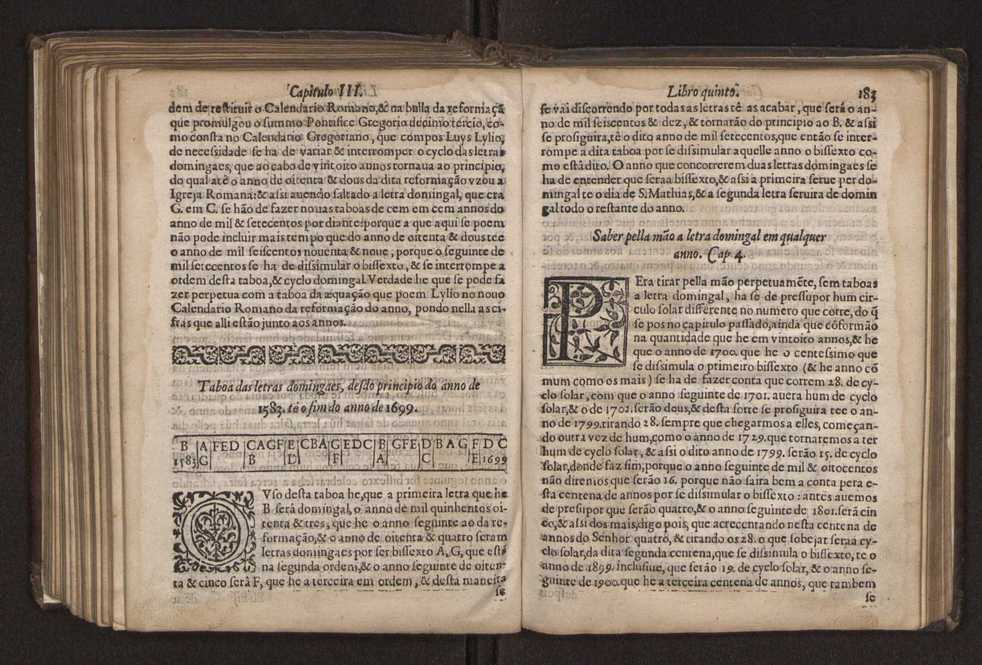 Capitulo III.
dem de restituir o Calendario Romano, & na bulla da reformaçã
que promulgou o summo Pontifice Gregorio decimo tercio, co-
mo consta no Calendario Gregoriano, que compos Luys Lylio,
de necessidade se ha de variar & interromper o cyclo das letras
domingaes, que ao cabo de vintoito annos tornaua ao principio,
do qual atè o anno de oitenta & dous da dita reformação vzou a
Igreja Romana: & assi auendo saltado a letra domingal, que era
G. em C. se hão de fazer nouas taboas de cem em cem annos do
anno de mil & setecentos por diante: porque a que aqui se poem
não pode incluir mais tempo que do anno de oitenta & dous tee
o anno de mil seiscentos nouenta & noue, porque o seguinte de
mil setecentos se ha de dissimular o bissexto, & se interrompe a
ordem desta taboa, & cyclo domingal. Verdade he que se pode fa
zer perpetua com a taboa da æquação que poem Lylio no nouo
Calendario Romano da reformação do anno, pondo nella as ci-
fras que alli estão junto aos annos.
Taboa das letras domingaes, desdo principio do anno de
1583. tè o fim do anno de 1699.
B A FED CAGF E CBA G EDC B GFE D BAG F D C
1583 G B D F A C E 1699
O Vso desta taboa he, que a primeira letra que he
B será domingal, o anno de mil quinhentos oi-
tenta & tres, que he o anno seguinte ao da re-
formação, & o anno de oitenta & quatro seram
letras domingaes por ser bissexto A, G, que està
na segunda ordem, & o anno seguinte de oiten-
ta & cinco serà F, que he a terceira em ordem, & desta maneira
se
Libro quinto.
183
se vai discorrendo por todas as letras tè as acabar, que serà o an-
no de mil seiscentos & dez, & tornarão do principio ao B. & assi
se prosiguira, tè o dito anno de mil setecentos, que então se inter-
rompe a dita taboa por se dissimular aquelle anno o bissexto co-
mo està dito. O anno que concorrerem duas letras domingaes se
ha de entender que seraa bissexto, & assi a primeira serue per do-
mingal te o dia de S. Mathias, & a segunda letra seruira de domin
gal todo o restante do anno.
Saber pella mão a letra domingal em qualquer
anno. Cap 4.
PEra tirar pella mão perpetuamẽte, sem taboas
a letra domingal, ha se de pressupor hum cir-
culo solar differente no numero que corre, do q̃
se pos no capitulo passado, ainda que cõformão
na quantidade que he em vintoito annos, & he
que o anno de 1700. que he o centessimo que
se dissimula o primeiro bissexto (& he anno cõ
mum como os mais) se ha de fazer conta que correm 28. de cy-
clo solar, com que o anno seguinte de 1701. auera hum de cyclo
solar, & o de 1702. serão dous, & desta sorte se prosiguira tee o an-
no de 1799. tirando 28. sempre que chegarmos a elles, começan-
do outra vez de hum, como o anno de 1729. que tornaremos a ter
hum de cyclo solar, & assi o dito anno de 1799. serão 15. de cyclo
solar, donde faz fim, porque o anno seguinte de mil & oitocentos
não diremos que serão 16. porque não saira bem a conta pera e-
sta centena de annos por se dissimular o bissexto: antes auemos
de presupor que serão quatro, & o anno seguinte de 1801. será cin
co, & assi dos mais, digo pois, que acrecentando nesta centena de
annos do Senhor quatro, & tirando os 28. o que sobejar seraa cy-
clo solar, da dita segunda centena, que se dissimula o bissexto, te o
anno de 1899. inclusiue, que serão 19. de cyclo solar, & o anno se-
guinte de 1900. que he a terceira centena de annos, que tambem
se